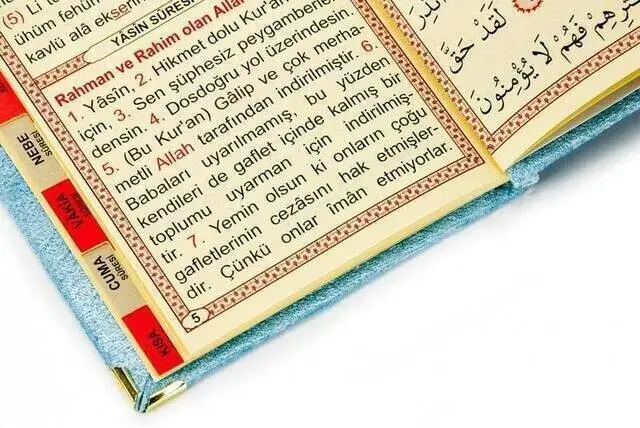 (5) Li t
ühüm fehüm
kavlü alâ ekseri
YÂSİN SÛRESİ
Rahman ve Rahim olan Allah
1. Yâsîn, 2. Hikmet dolu Kur'an
için, 3. Sen şüphesiz peygamberler
densin. 4. Dosdoğru yol üzerindesin.
5. (Bu Kur'an) Gâlip ve çok merha-
metli Allah tarafından indirilmiştir. 6.
Babaları uyarılmamış, bu yüzden
kendileri de gaflet içinde kalmış bir
toplumu uyarman için indirilmiş-
tir. 7. Yemin olsun ki onların çoğu
gafletlerinin cezâsını hak etmişler-
dir. Çünkü onlar imân etmiyorlar.
5
NEBE
SÛRESİ
VÂKIA
SÛRESİ
CUMA
SÛRESİ
KISA
لَقَدْ حَقَّ
فَهُمْ لَا يُؤْمِنُونَ